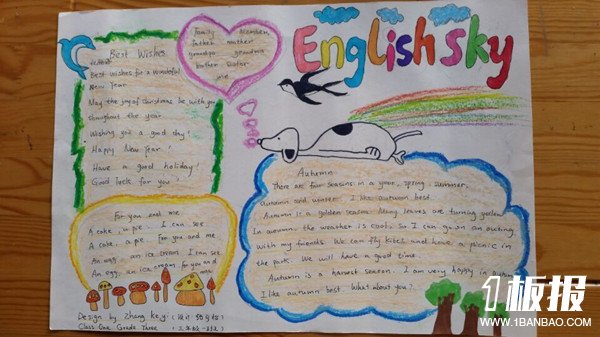 English sky
Family Member
father mother
grandpa grandma
brother sister
Best Wishes
Best Wishes for a Wonderful
New Year
May the joy of Christmas be with you
throughout the year
Wishing you a good day!
Happy New Year!
Have a good holiday!
Good luck for you!
For you and me
A cake, a pie, I can see
A cake, a pie, For you and me
An egg, an ice cream I can see
An egg, an ice cream, for you and
me
Design by Zhang
Class One Grade Three
Autumn
There are four seasons in a year, spring, summer,
autumn and winter. I like autumn best.
Autumn is a golden season. Many leaves are turning yellow
In autumn the weather is cool. So I can go on an outing
with my friends. We can fly kites and have a picnic in
the park. We will have a good time.
Autumn is a harvest season. I am very happy in autumn
I like autumn best. What about you?
1板报
WWW.1BANBAO.COM